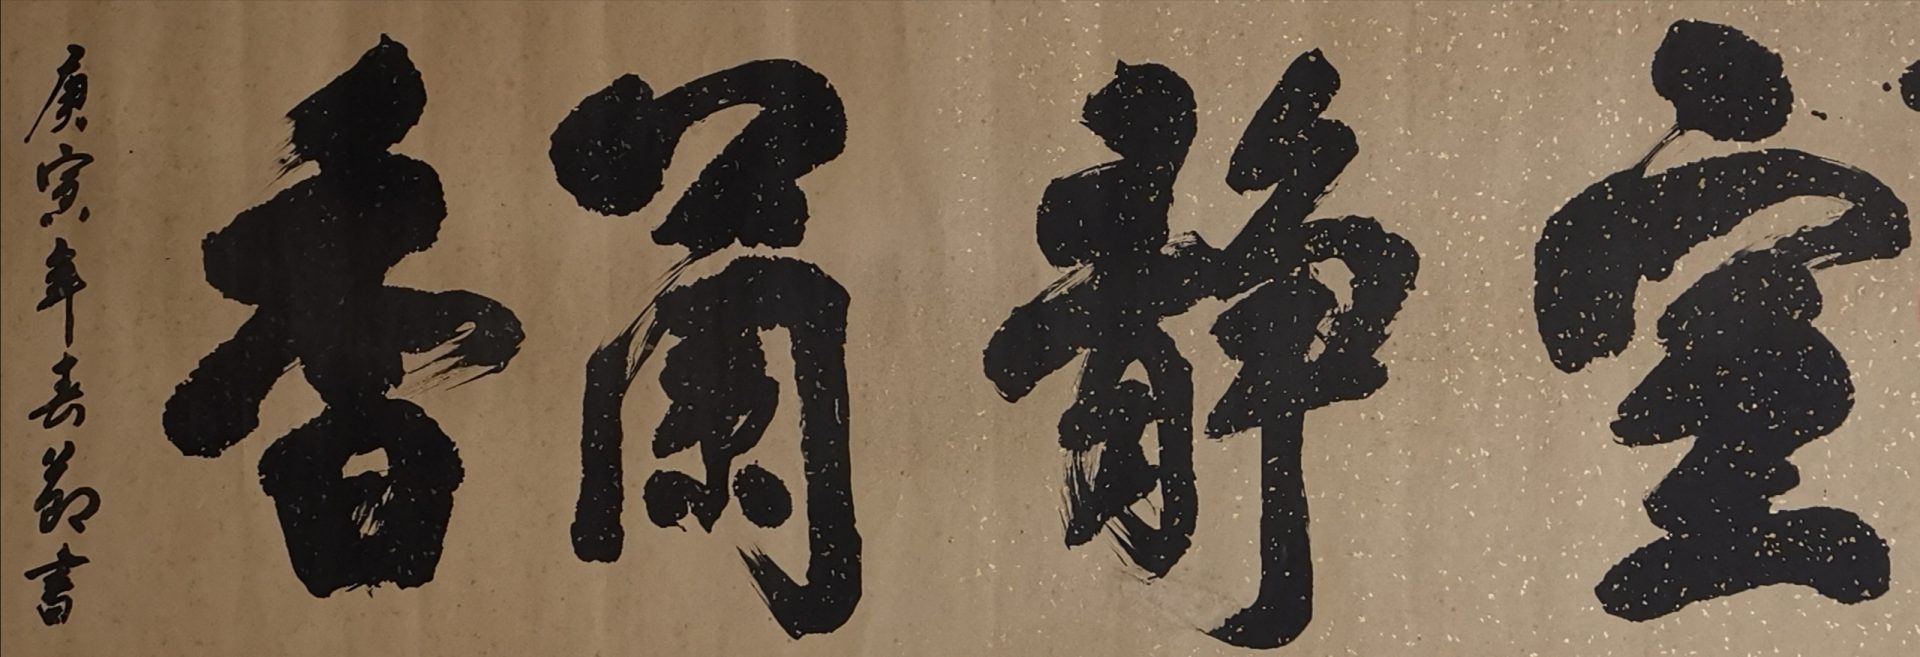 室静蘭香
庚寅年春節書